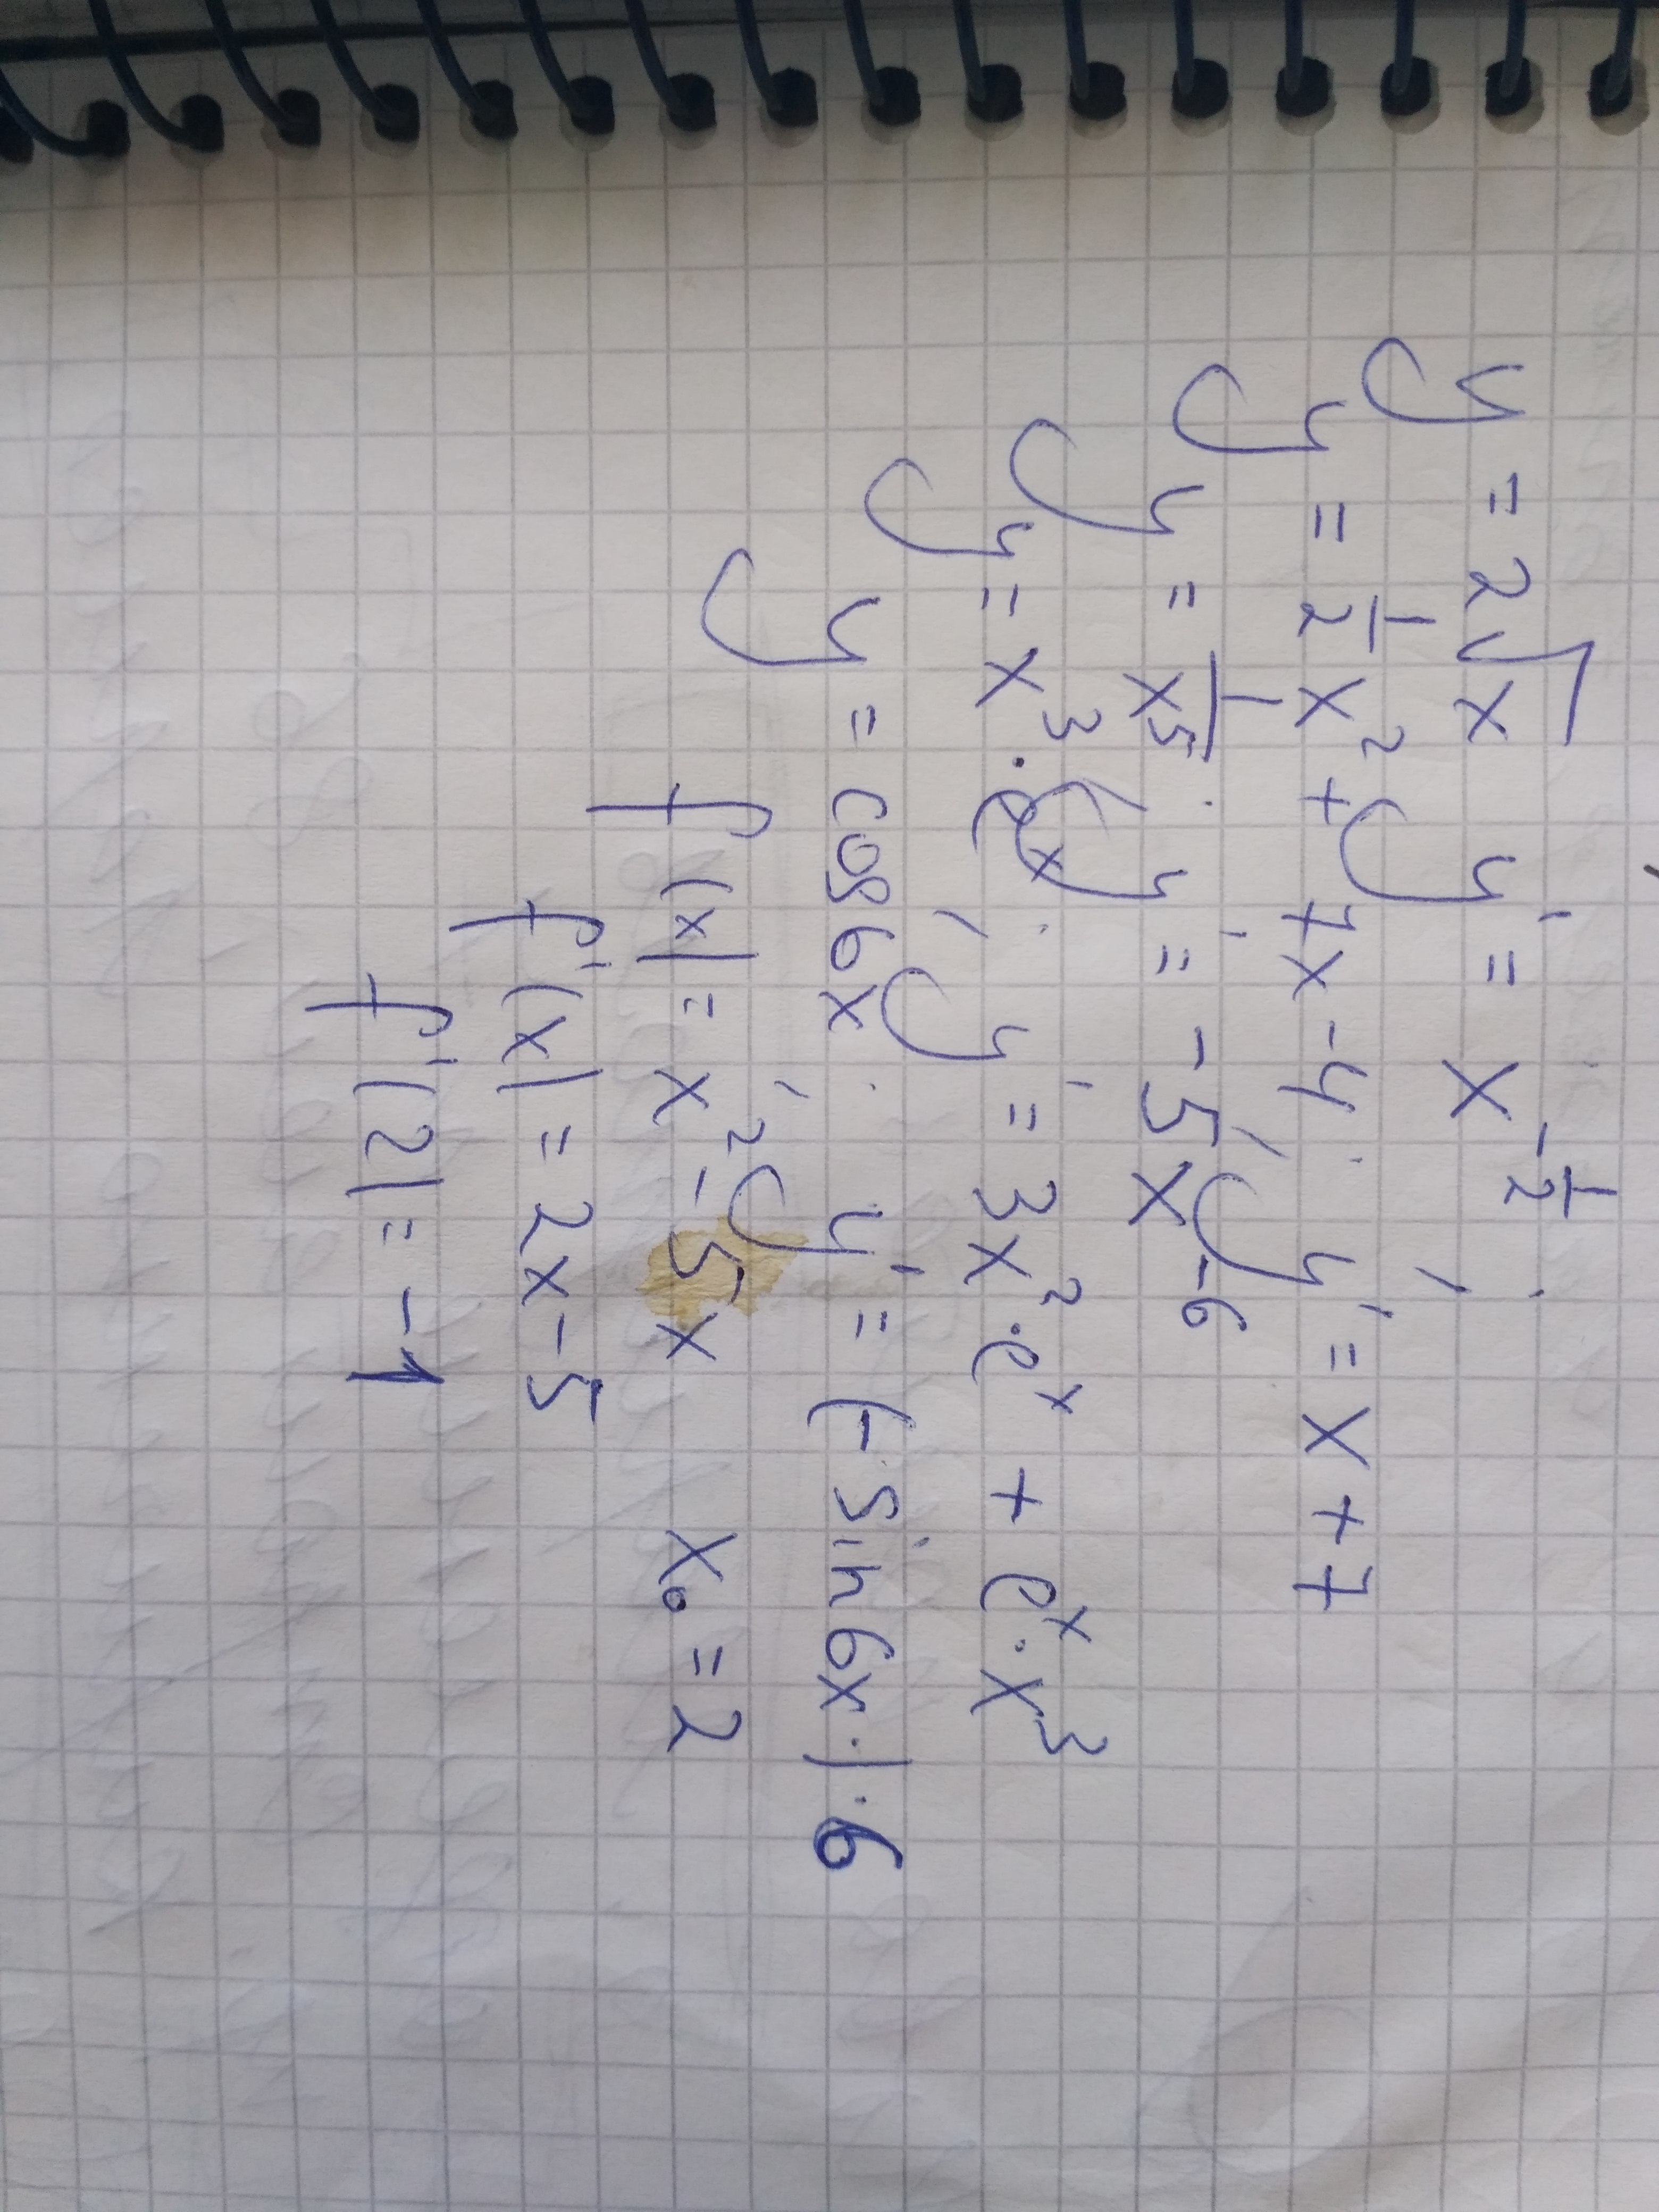 y = 2√x ; y' = x^(-1/2) ;
y = 1/2 x² + 7x - 4 ; y' = x + 7
y = 1/x⁵ ; y' = -5x⁻⁶
y = x³ · eˣ ; y' = 3x² · eˣ + eˣ · x³
y = cos 6x ; y' = (- sin 6x ·) · 6
f(x) = x² - 5x x₀ = 2
f'(x) = 2x - 5
f'(2) = -1